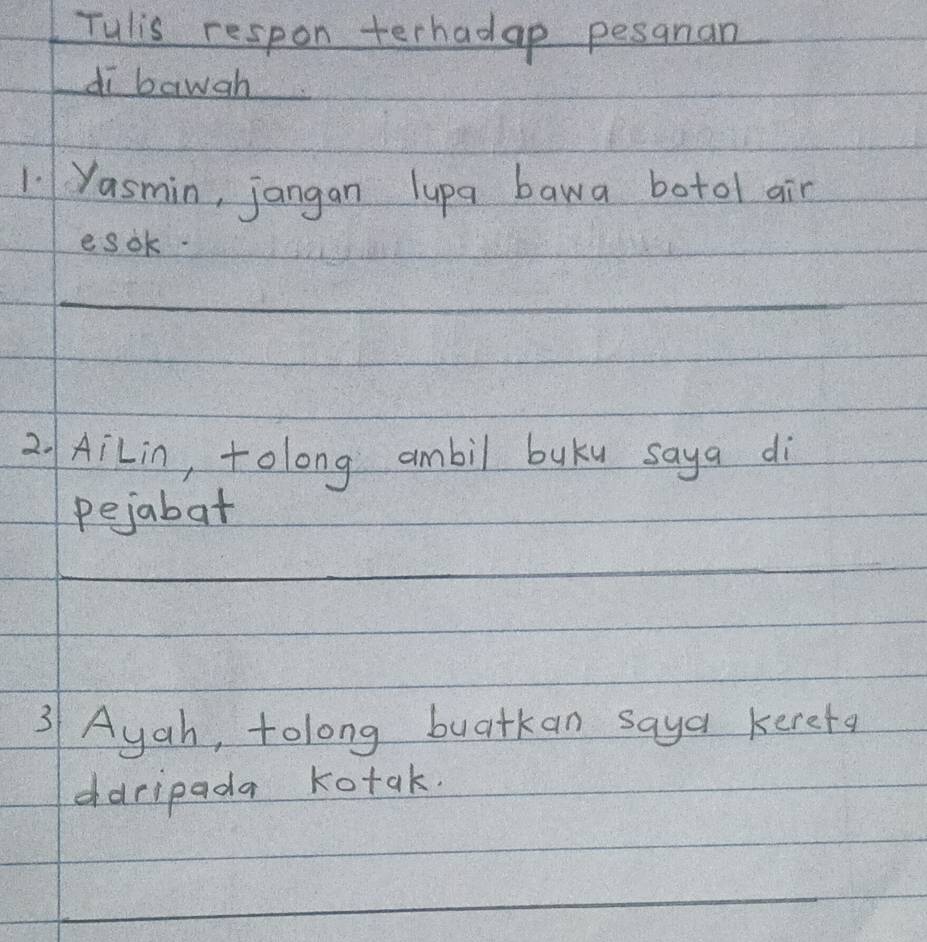 Tulis respon terhadap pesanan
di bawah
1. Yasmin, jangan lupa bawa botol air
esok.
2. AiLin, tolong ambil buku saya di
pejabat
3 Ayah, tolong buatkan saya kereta
daripada kotak.